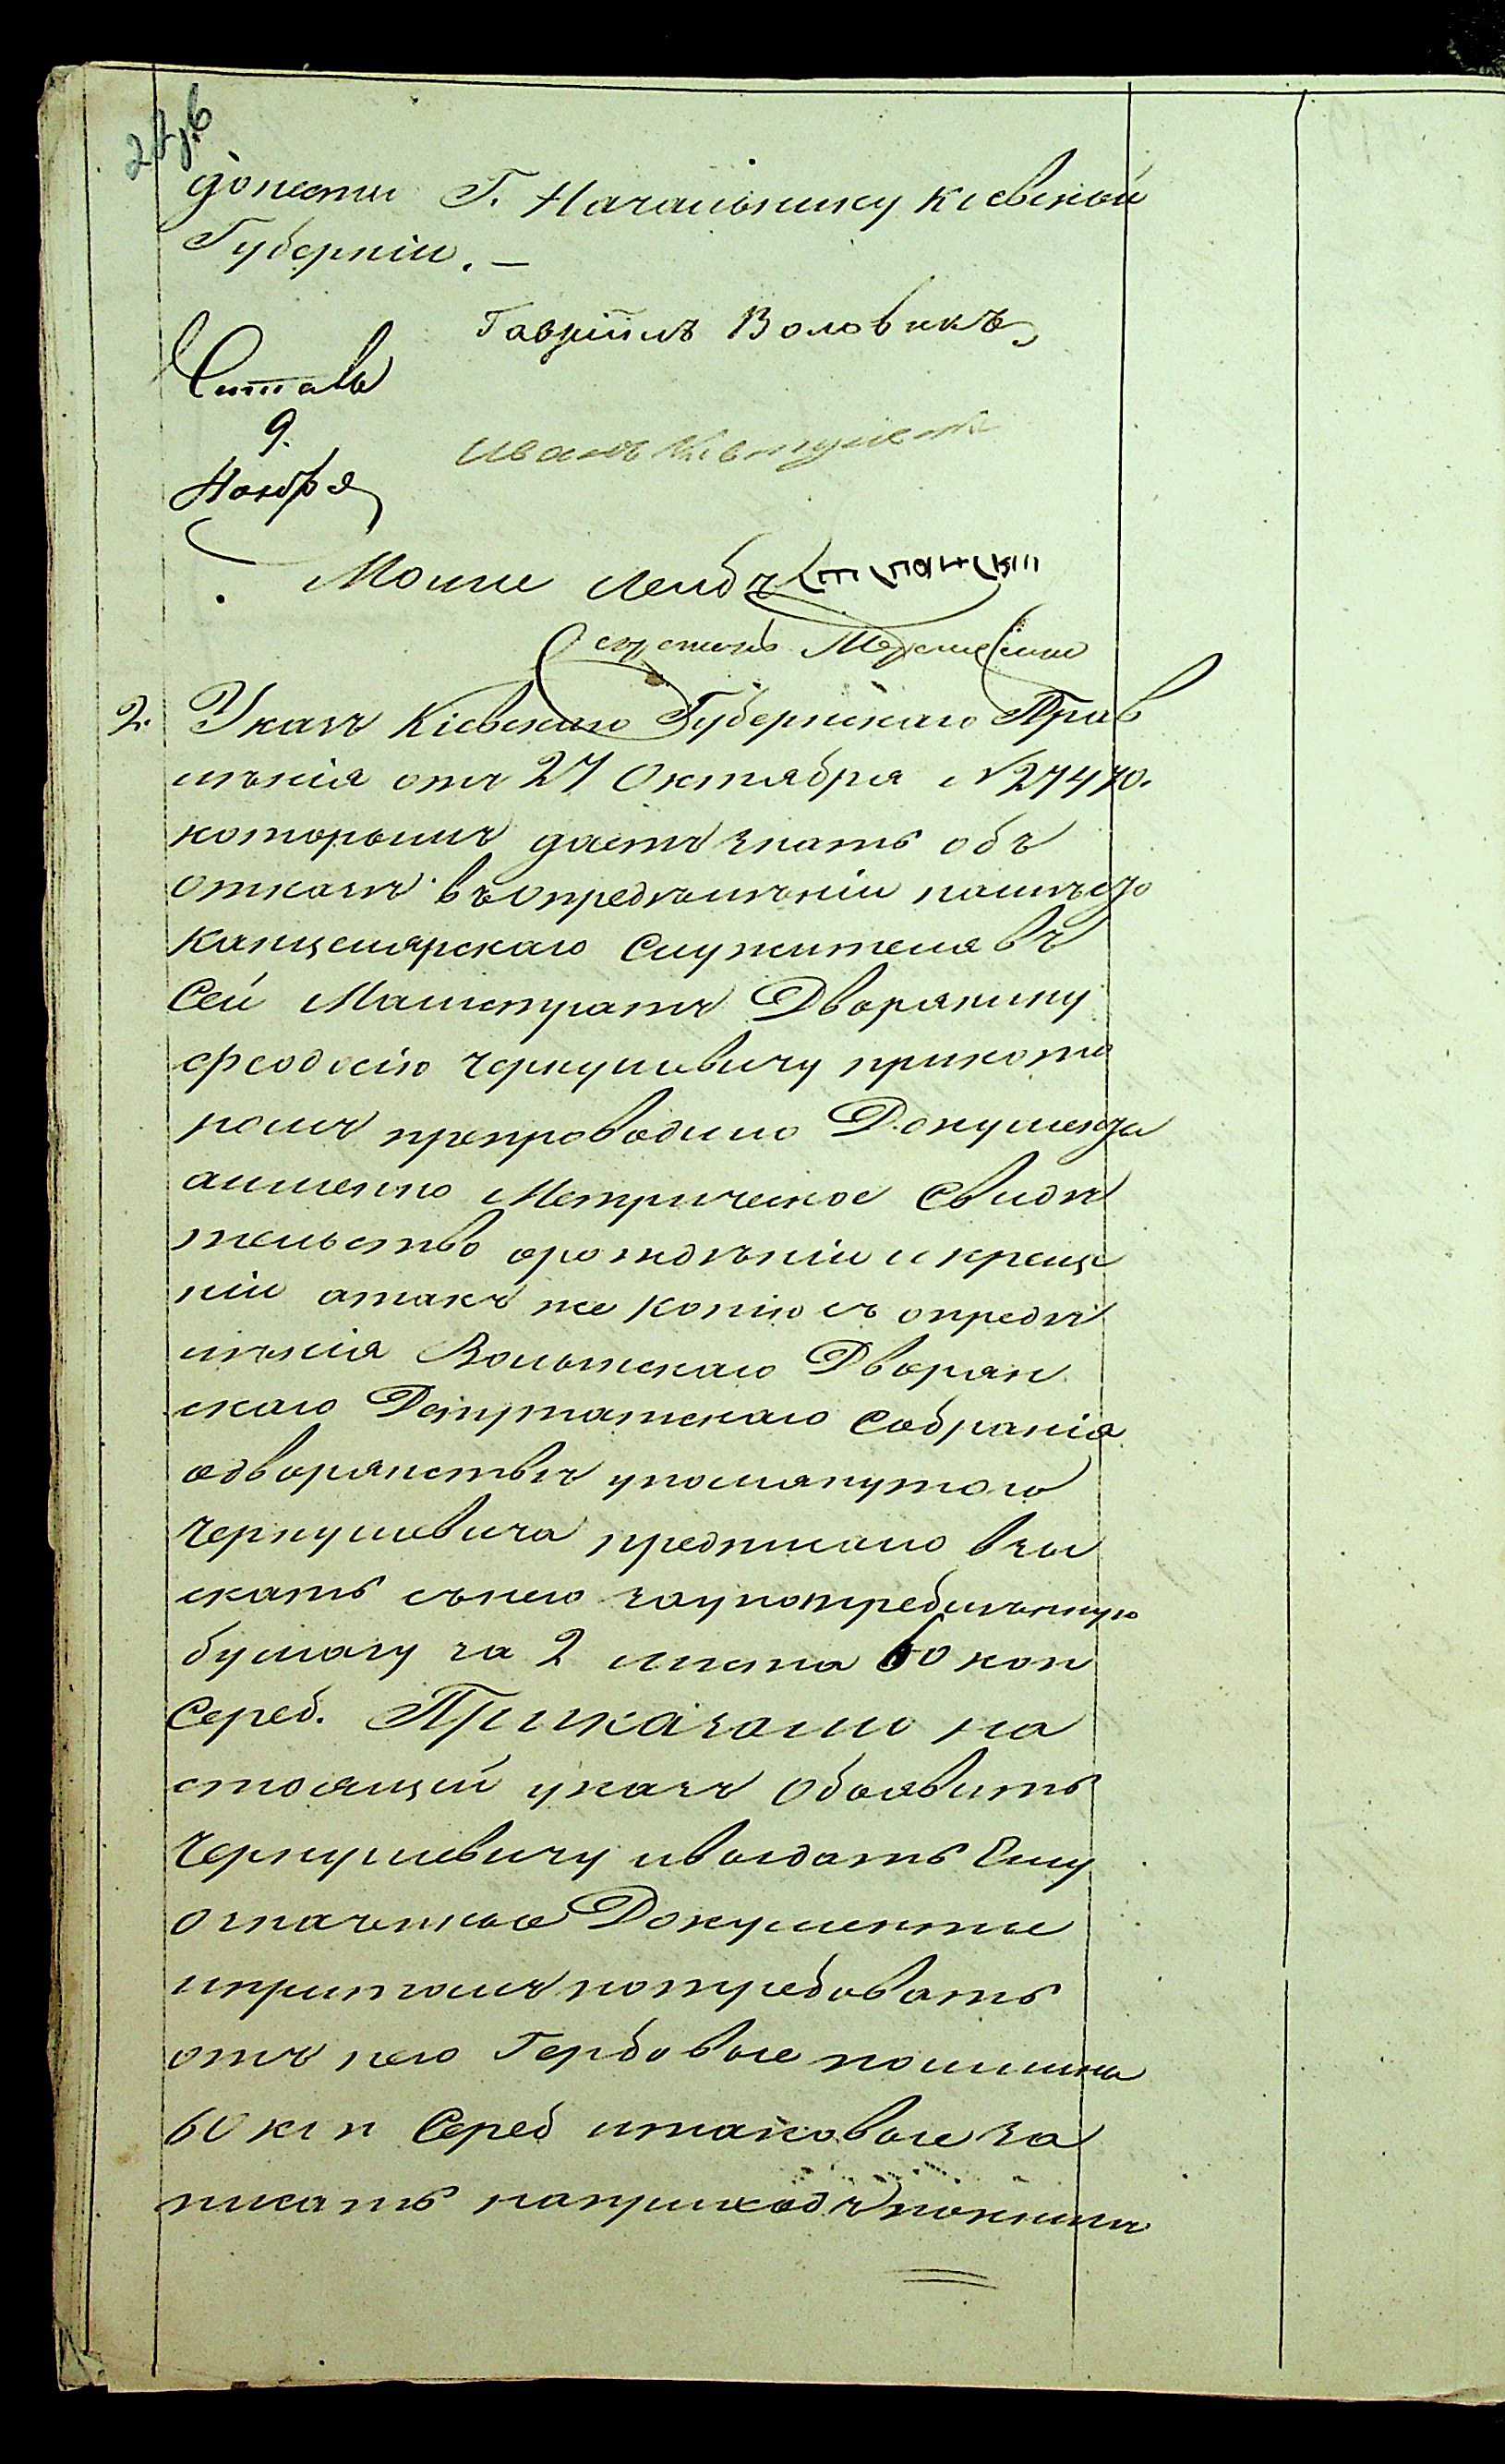 донести Г. Начальнику Кіевской
Губерніи. —
Гавріилъ Воловикъ
Читалъ
9.
Ноября
Иванъ
Мошке Лейбъ
2. Указъ Кіевскаго Губернскаго Прав
лѣнія отъ 27 Октября №27470.
которымъ даетъ знать объ
отказѣ въ опредѣлѣніи на
Канцелярскаго Служителя въ
Сей Магистратъ Дворянину
Феодосію Чернушевичу прикото
ромъ препроводило Документы
аименно Метрическое Свидѣ
тельство орождѣніи и креще
ніи атакъ же Копію съ опредѣ
лѣнія Волынскаго Дворян
скаго Депутатскаго Собранія
одворянствѣ упомянутого
Чернушевича предписало взы
скать снего заупотреблѣнную
бумагу за 2 листа 60 коп
Сереб. Приказали на
стоящій указъ Обоявить
Чернушевичу ивыдать Ему
означенные Документы
ипритомъ потребовать
отъ него Гербовые пошлины
60 коп Сереб итаковые за
писать наприходъ покнигѣ